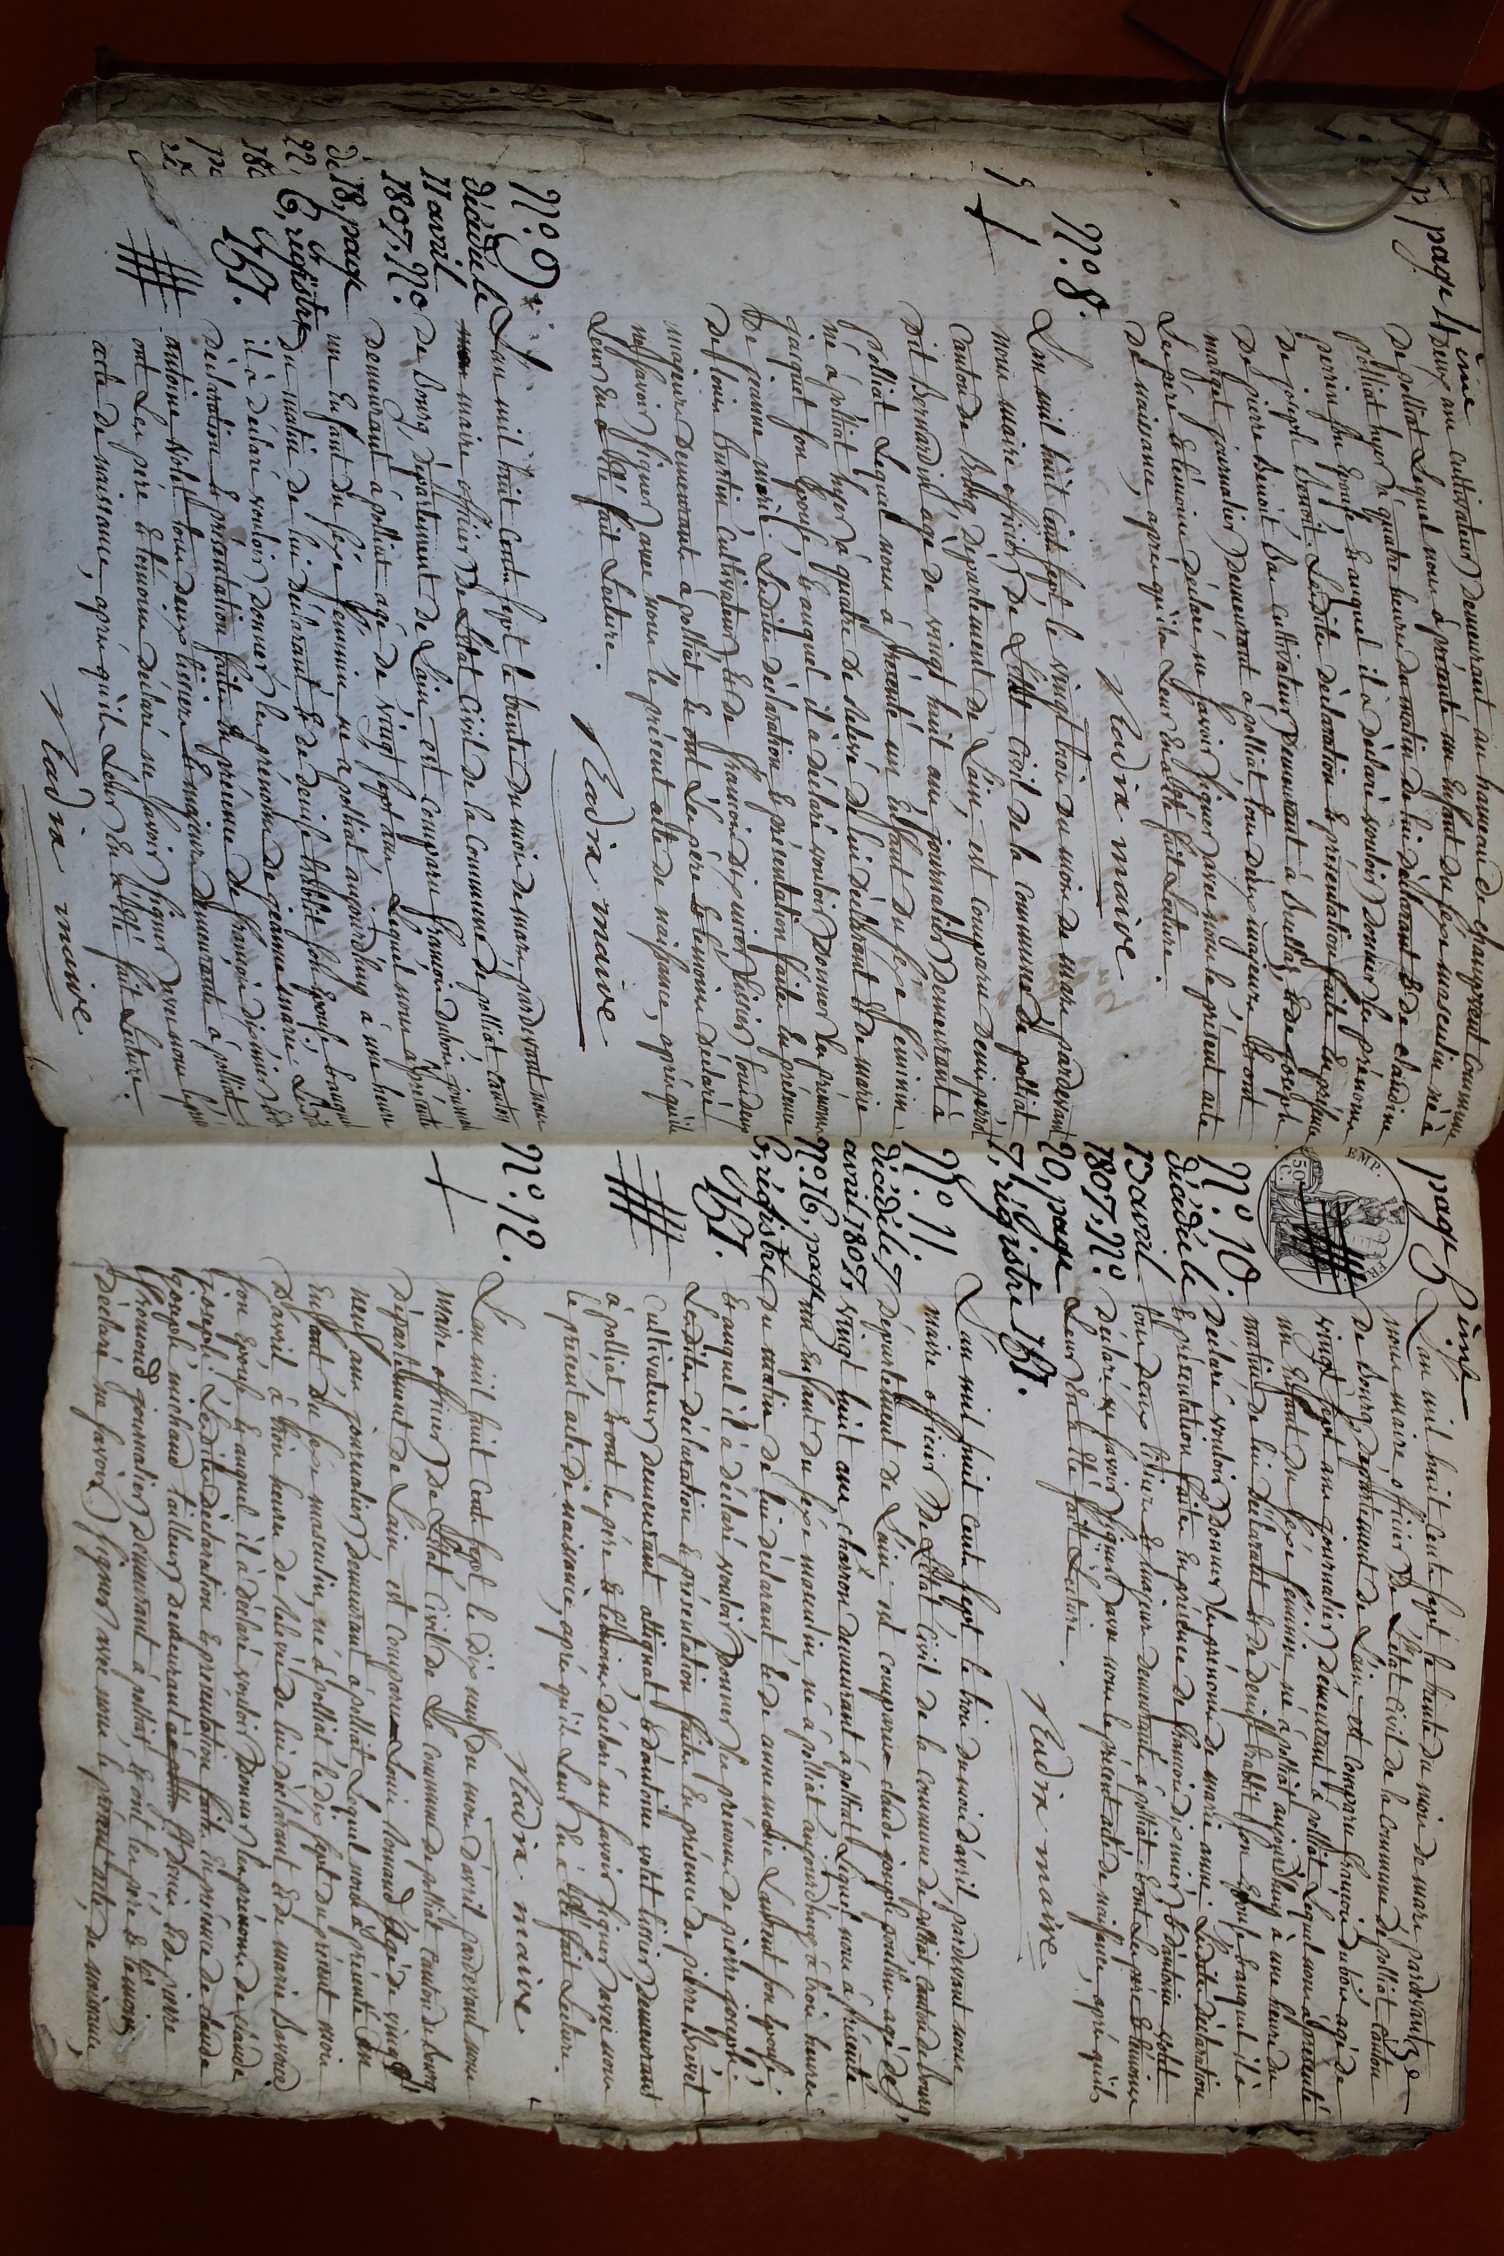 page 4ème
deux ans cultivateur demeurant au hameau de champvent commune
de polliat Lequel nous à présenté un enfant du sexe masculin né à
polliat hyer à quatre heures du matin de lui déclarant & de claudine
perrin son Épouse & auquel il a déclaré vouloir donner les prénoms
de joseph benoit. Ladite déclaration & présentation faite en présence
de pierre benoit cultivateur demeurant à & de joseph
manget journalier demeurant à polliat tous deux majeurs & ont
Les père & témoins déclaré ne savoir signer avec nous le présent acte
de naissance, après qu'ils Leur En a été fait Lecture.
Nadra maire
N.° 8.
L'an mil huit cent sept le vingt trois du mois de mars pardevant
nous maire officier de L'état civil de la commune de polliat
canton de Bourg, département de L'ain, est comparu
dit bernardin agé de vingt huit ans journalier demeurant à
polliat Lequel nous à présenté un enfant du sexe féminin
né à polliat hyer à quatre de relevé de lui déclarant & de marie
jacquet son Épouse & auquel il a déclaré vouloir donner les prénoms
de jeanne marie. Ladite déclaration & présentation faite en présence
de Louis burtin cultivateur, & de francois dizimier tissier tous deux
majeurs demeurants à polliat & ont Les père & témoins déclaré
ne savoir signer avec nous le présent acte de naissance, après qu'ils
Leur En a été fait Lecture.
Nadra maire
N.° 9
décédé le
11 avril
1807, N.°
18, page
6, registre
1er.
L'an mil huit cents sept le trente du mois de mars, pardevant nous
maire officier de L'état civil de la commune de polliat canton
de Bourg, département de L'ain est comparu francois dubois journal
demeurant à polliat agé de vingt sept ans Lequel nous a présenté
un Enfant du sexe féminin né a polliat aujourd'huy à une heure
du matin de lui déclarant & de denise brabit son Épouse, & auquel
il à déclaré vouloir donner les prénoms de jeanne marie. Ladite
déclaration & présentation faite En présence de francois dizimier &
antoine volat tous deux tissiers & majeurs demeurants à polliat
ont Les père & témoins déclaré ne savoir signer avec nous le présent
acte de naissance, après qu'ils Leur En a été fait Lecture.
Nadra maire
page 5ème
EMP. FR.
50 C.
N.° 10.
décédé le
13 avril
1807, N.°
20, page
7, registre 1er.
L'an mil huit cents sept le trente du mois de mars pardevant
nous maire officier de L'état civil de la commune de polliat canton
de bourg, département de L'ain est comparu francois dubois agé de
vingt sept ans journalier demeurant à polliat Lequel nous a présenté
un Enfant du sexe féminin né à polliat aujourd'huy à une heure du
matin, de lui déclarant & de denise brabit son Épouse & auquel il à
déclaré vouloir donner les prénoms de marie anne. Ladite déclaration
& présentation faite en présence de francois dizimier & d'antoine volat
tous deux tissiers & majeurs demeurants à polliat & ont Les père & témoins
déclaré ne savoir signer avec nous le présent acte de naissance, après qu'ils
Leur En a été fait Lecture.
Nadra maire
N.° 11
décédé le 7
avril 1807,
N.° 16, page
6, registre
1er.
L'an mil huit cents sept le trois du mois d'avril pardevant nous
maire officier de L'état civil de la commune de polliat canton de bourg
département de L'ain est comparu claude joseph agé de
vingt huit ans charron demeurant à polliat Lequel nous a présenté
un Enfant du sexe masculin né à polliat aujourd'huy à trois heures
du matin de lui déclarant & de anne marie Laurent son Épouse
& auquel il à déclaré vouloir donner les prénoms de pierre joseph.
Ladite déclaration & présentation faite En présence de pierre brevet
cultivateur demeurant attignat & d'antoine volat tissier demeurant
à polliat & ont les père & témoins déclaré ne savoir signer avec nous
le présent acte de naissance, après qu'ils Leur En à été fait Lecture.
Nadra maire
N.° 12.
L'an mil huit cent sept le dix neuf du mois d'avril pardevant nous
maire officier de L'état civil de la commune de polliat canton de bourg
département de L'ain est comparu Louis bonnand agé de vingt
neuf ans journalier demeurant à polliat Lequel nous à présenté un
Enfant du sexe masculin, né à polliat le dix sept du présent mois
d'avril à trois heures de relevé de lui déclarant & de marie
son Épouse & auquel il à déclaré vouloir donner les prénoms de claude
joseph. Ladite déclaration & présentation faite En présence de claude
joseph michaud tailleur demeurant à & de pierre
journalier demeurant à polliat & ont les père & témoins
déclaré ne savoir signer avec nous le présent acte de naissance,